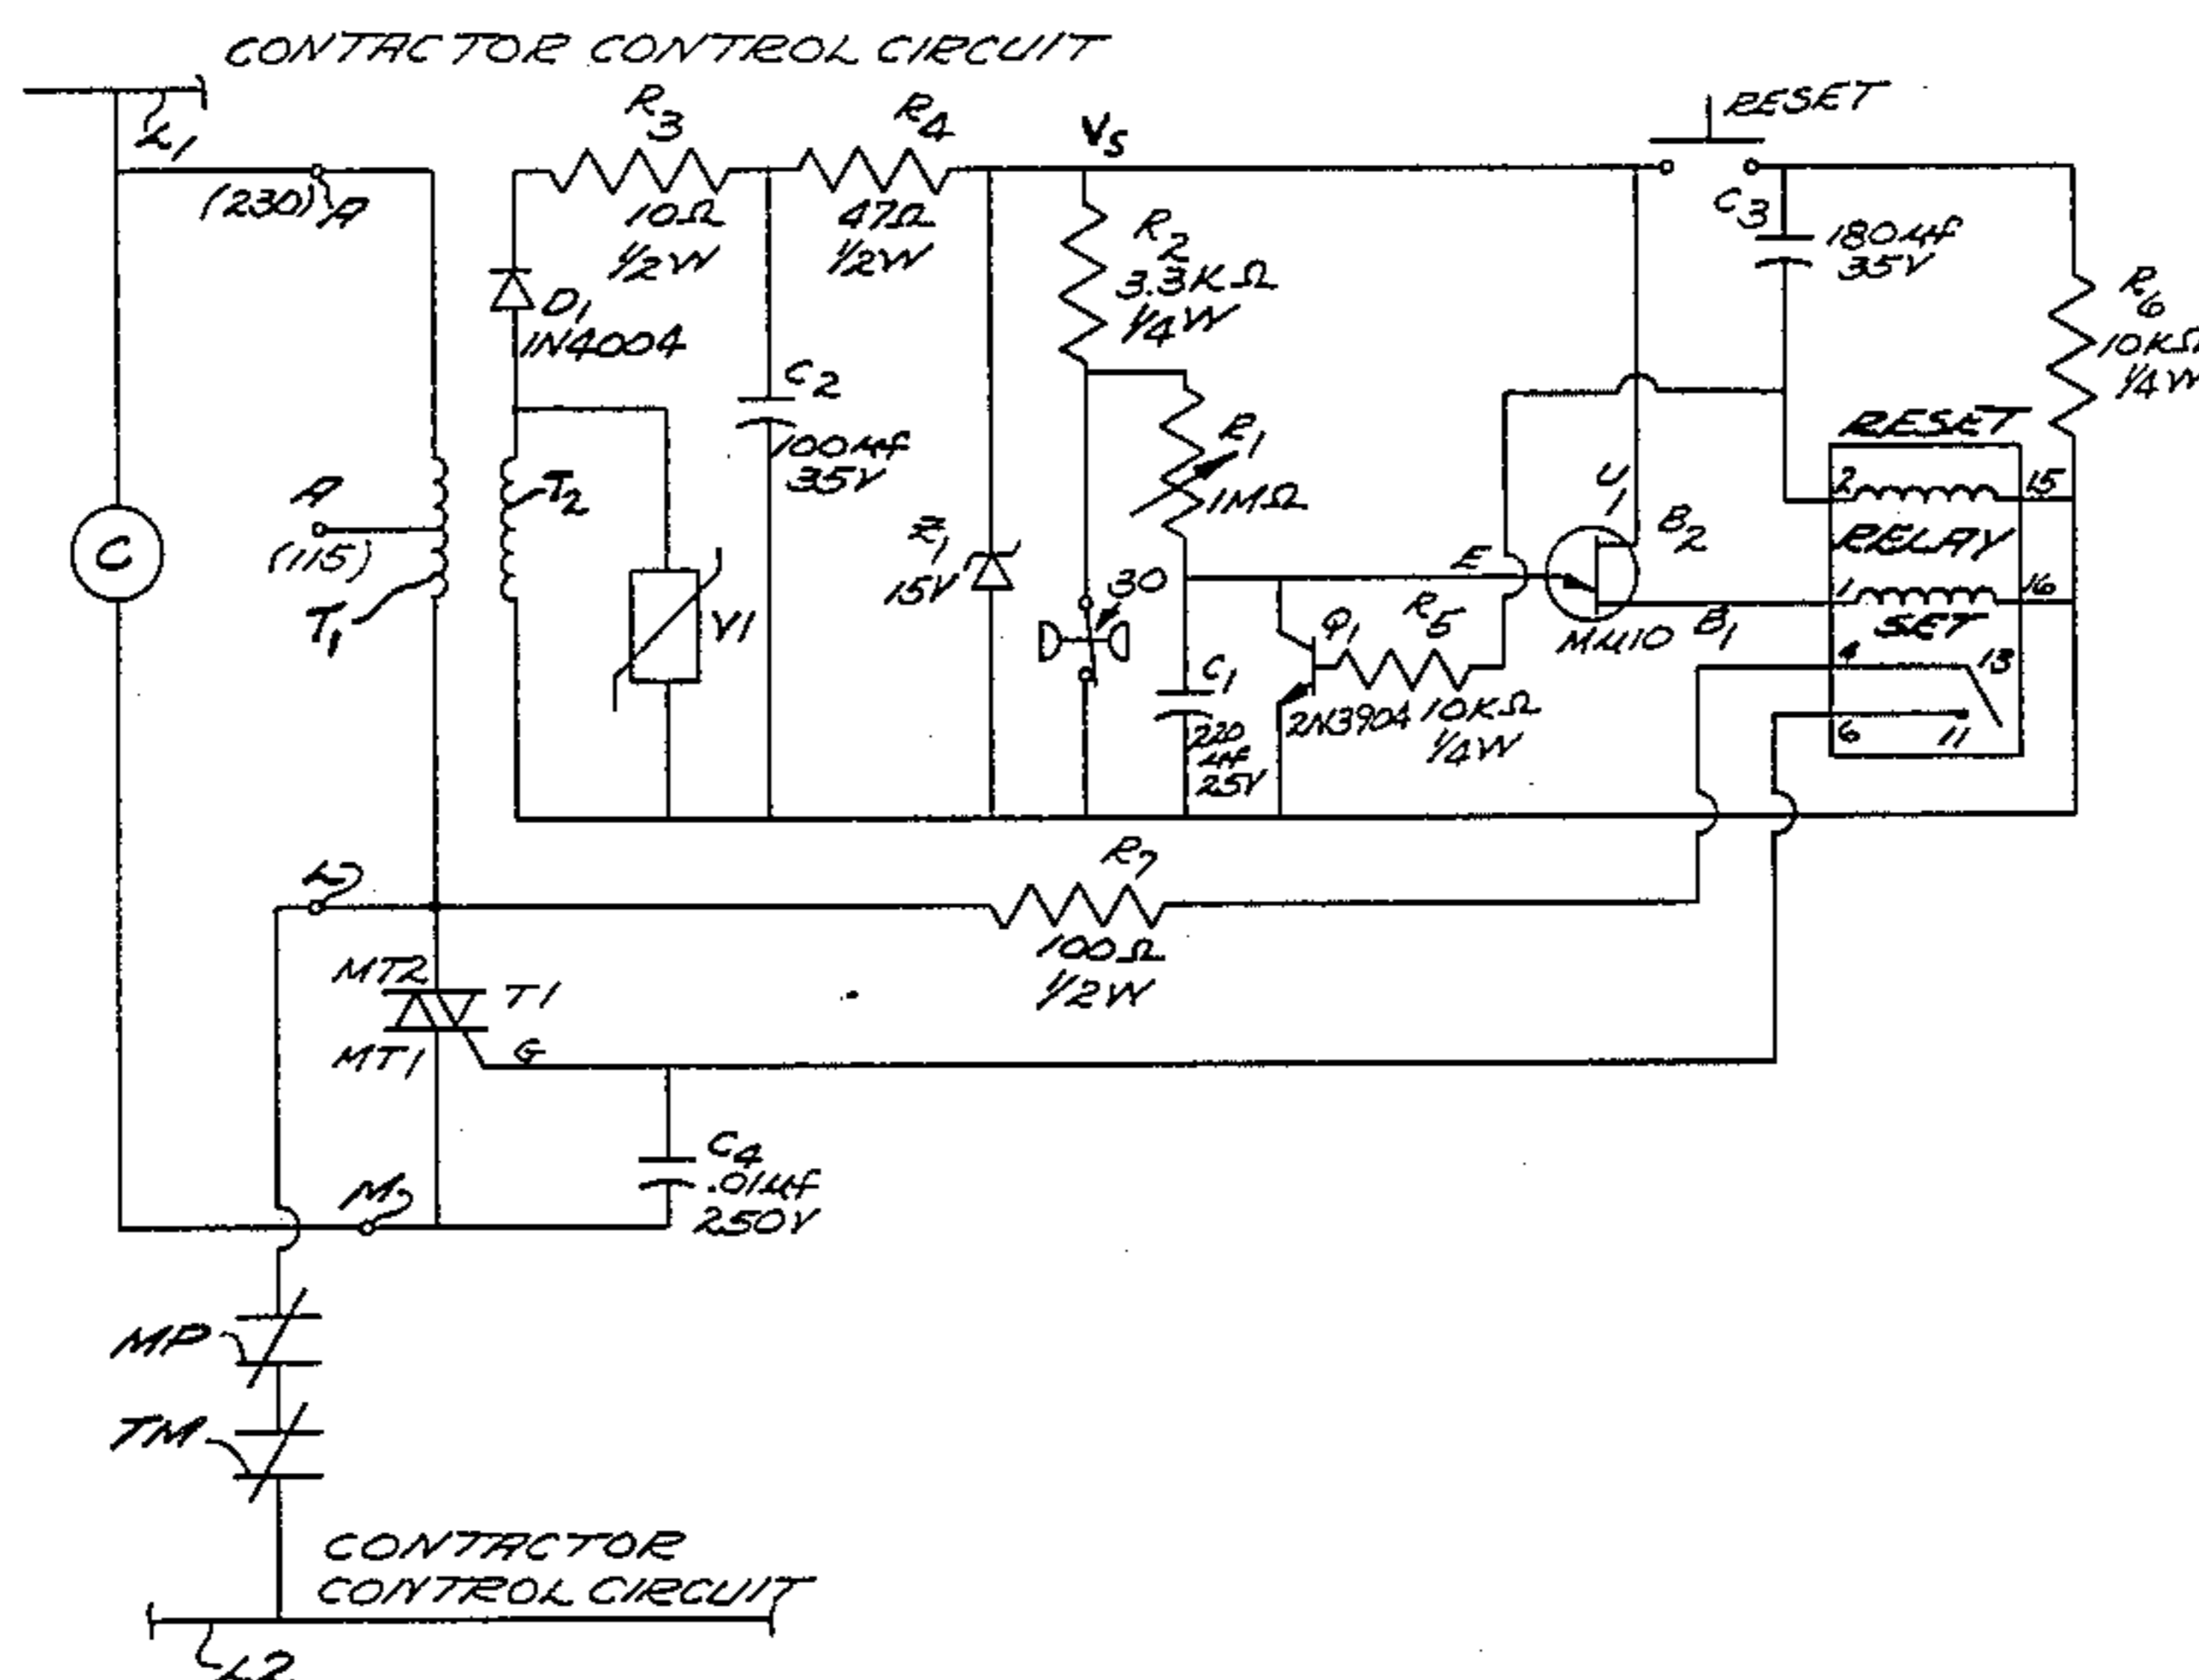 CONTACTOR CONTROL CIRCUIT
L1
(230) A
R3
10Ω
1/2W
R4
47Ω
1/2W
VS
RESET
C3
180µf
35V
R2
3.3KΩ
1/4W
R6
10KΩ
1/4W
D1
1N4004
C2
100µf
35V
R1
1MΩ
RESET
2
15
RELAY
1
16
SET
4
13
6
11
A
(115)
T1
T2
C
V1
Z1
15V
30
U1
B2
E
B1
MU10
R5
10KΩ
1/4W
Q1
2N3904
C1
220
µf
25V
L
R7
100Ω
1/2W
MT2
T1
MT1
G
C4
.01µf
250V
M
MP
TM
CONTACTOR
CONTROL CIRCUIT
L2